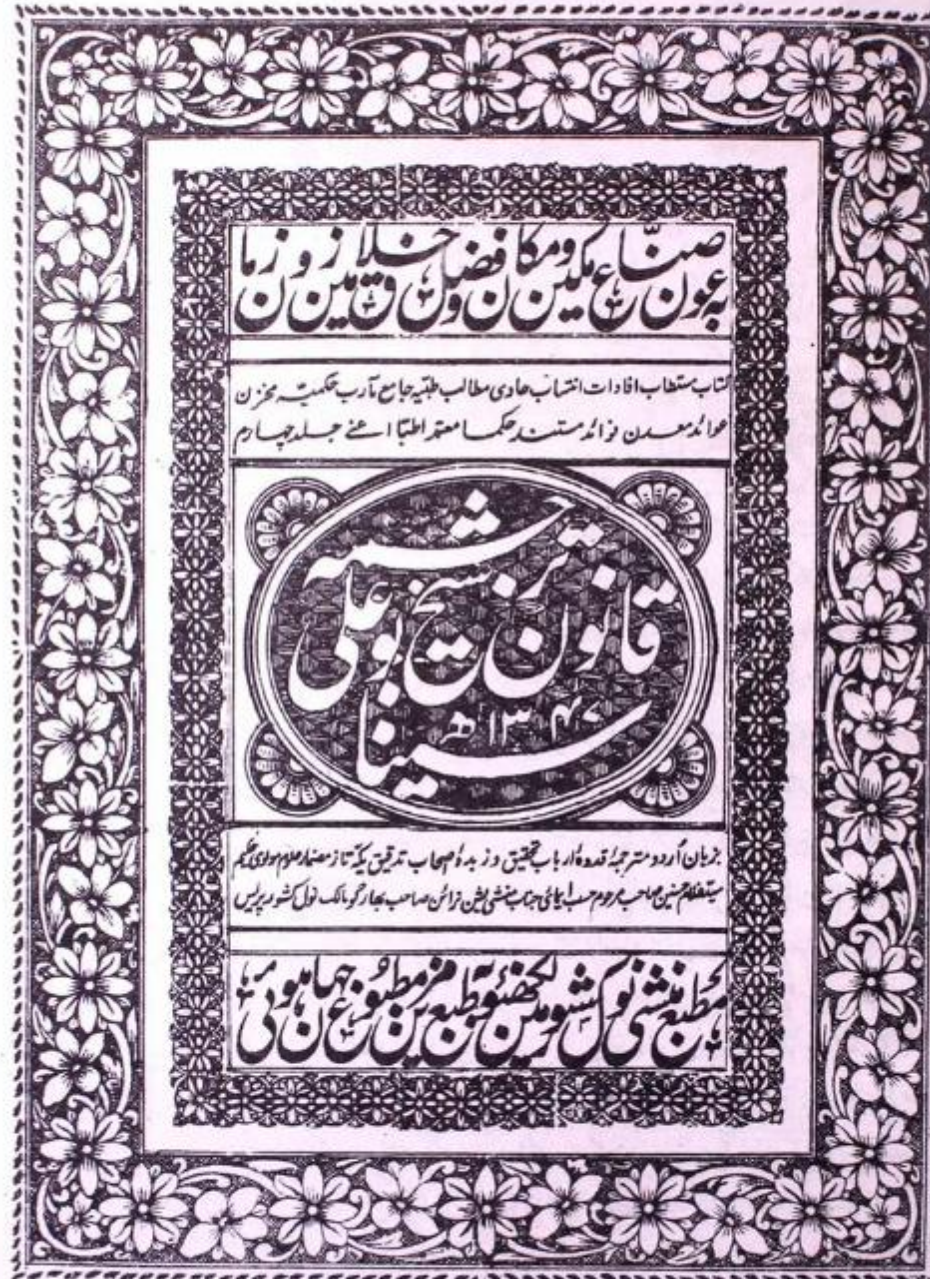 بہ عون صناع مکین و مکان و فضل خلاق زمین و زمان
کتاب مستطاب افادات انتساب حاوی مطالب طبیہ جامع مآرب حکمیہ مخزن
عوائد معدن فوائد مستند حکما معتمد اطبا اعنے جلد چہارم
ترجمہ
قانون شیخ بو علی
سینا
۱۳۴۷ھ
بزبان اُردو مترجمۂ قدوۂ ارباب تحقیق و زبدۂ اصحاب تدقیق یکہ تاز مضمار علام مولوی حکیم
سید غلام حسنین صاحب مرحوم حسب ایمائی جناب منشی بشن نرائن صاحب بھارگو مالک نول کشور پریس
مطبع منشی نول کشور لکھنؤ میں بہ طبع مزین مطبوع جہان ہوئی